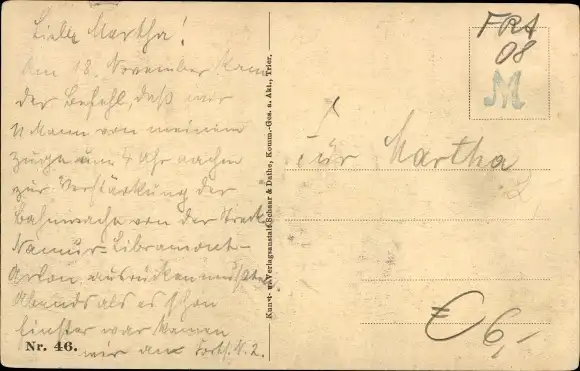 Liebe Martha!
Am 18. November kam
der Befehl, daß wir
11 Mann von meinem
Zuge um 4 Uhr nachm
zur Verstärkung der
Bahnwache von der Streck
Namur-Libramont-
Arlon, ausrücken mußten
Abends als es schon
finster war kamen
wir an Forts. N. 2.
Nr. 46.
Kunst- u. Verlagsanstalt Schaar & Dathe, Komm.-Ges. a. Akt., Trier.
Für Martha
2
FRA
08
M
€ 6,-